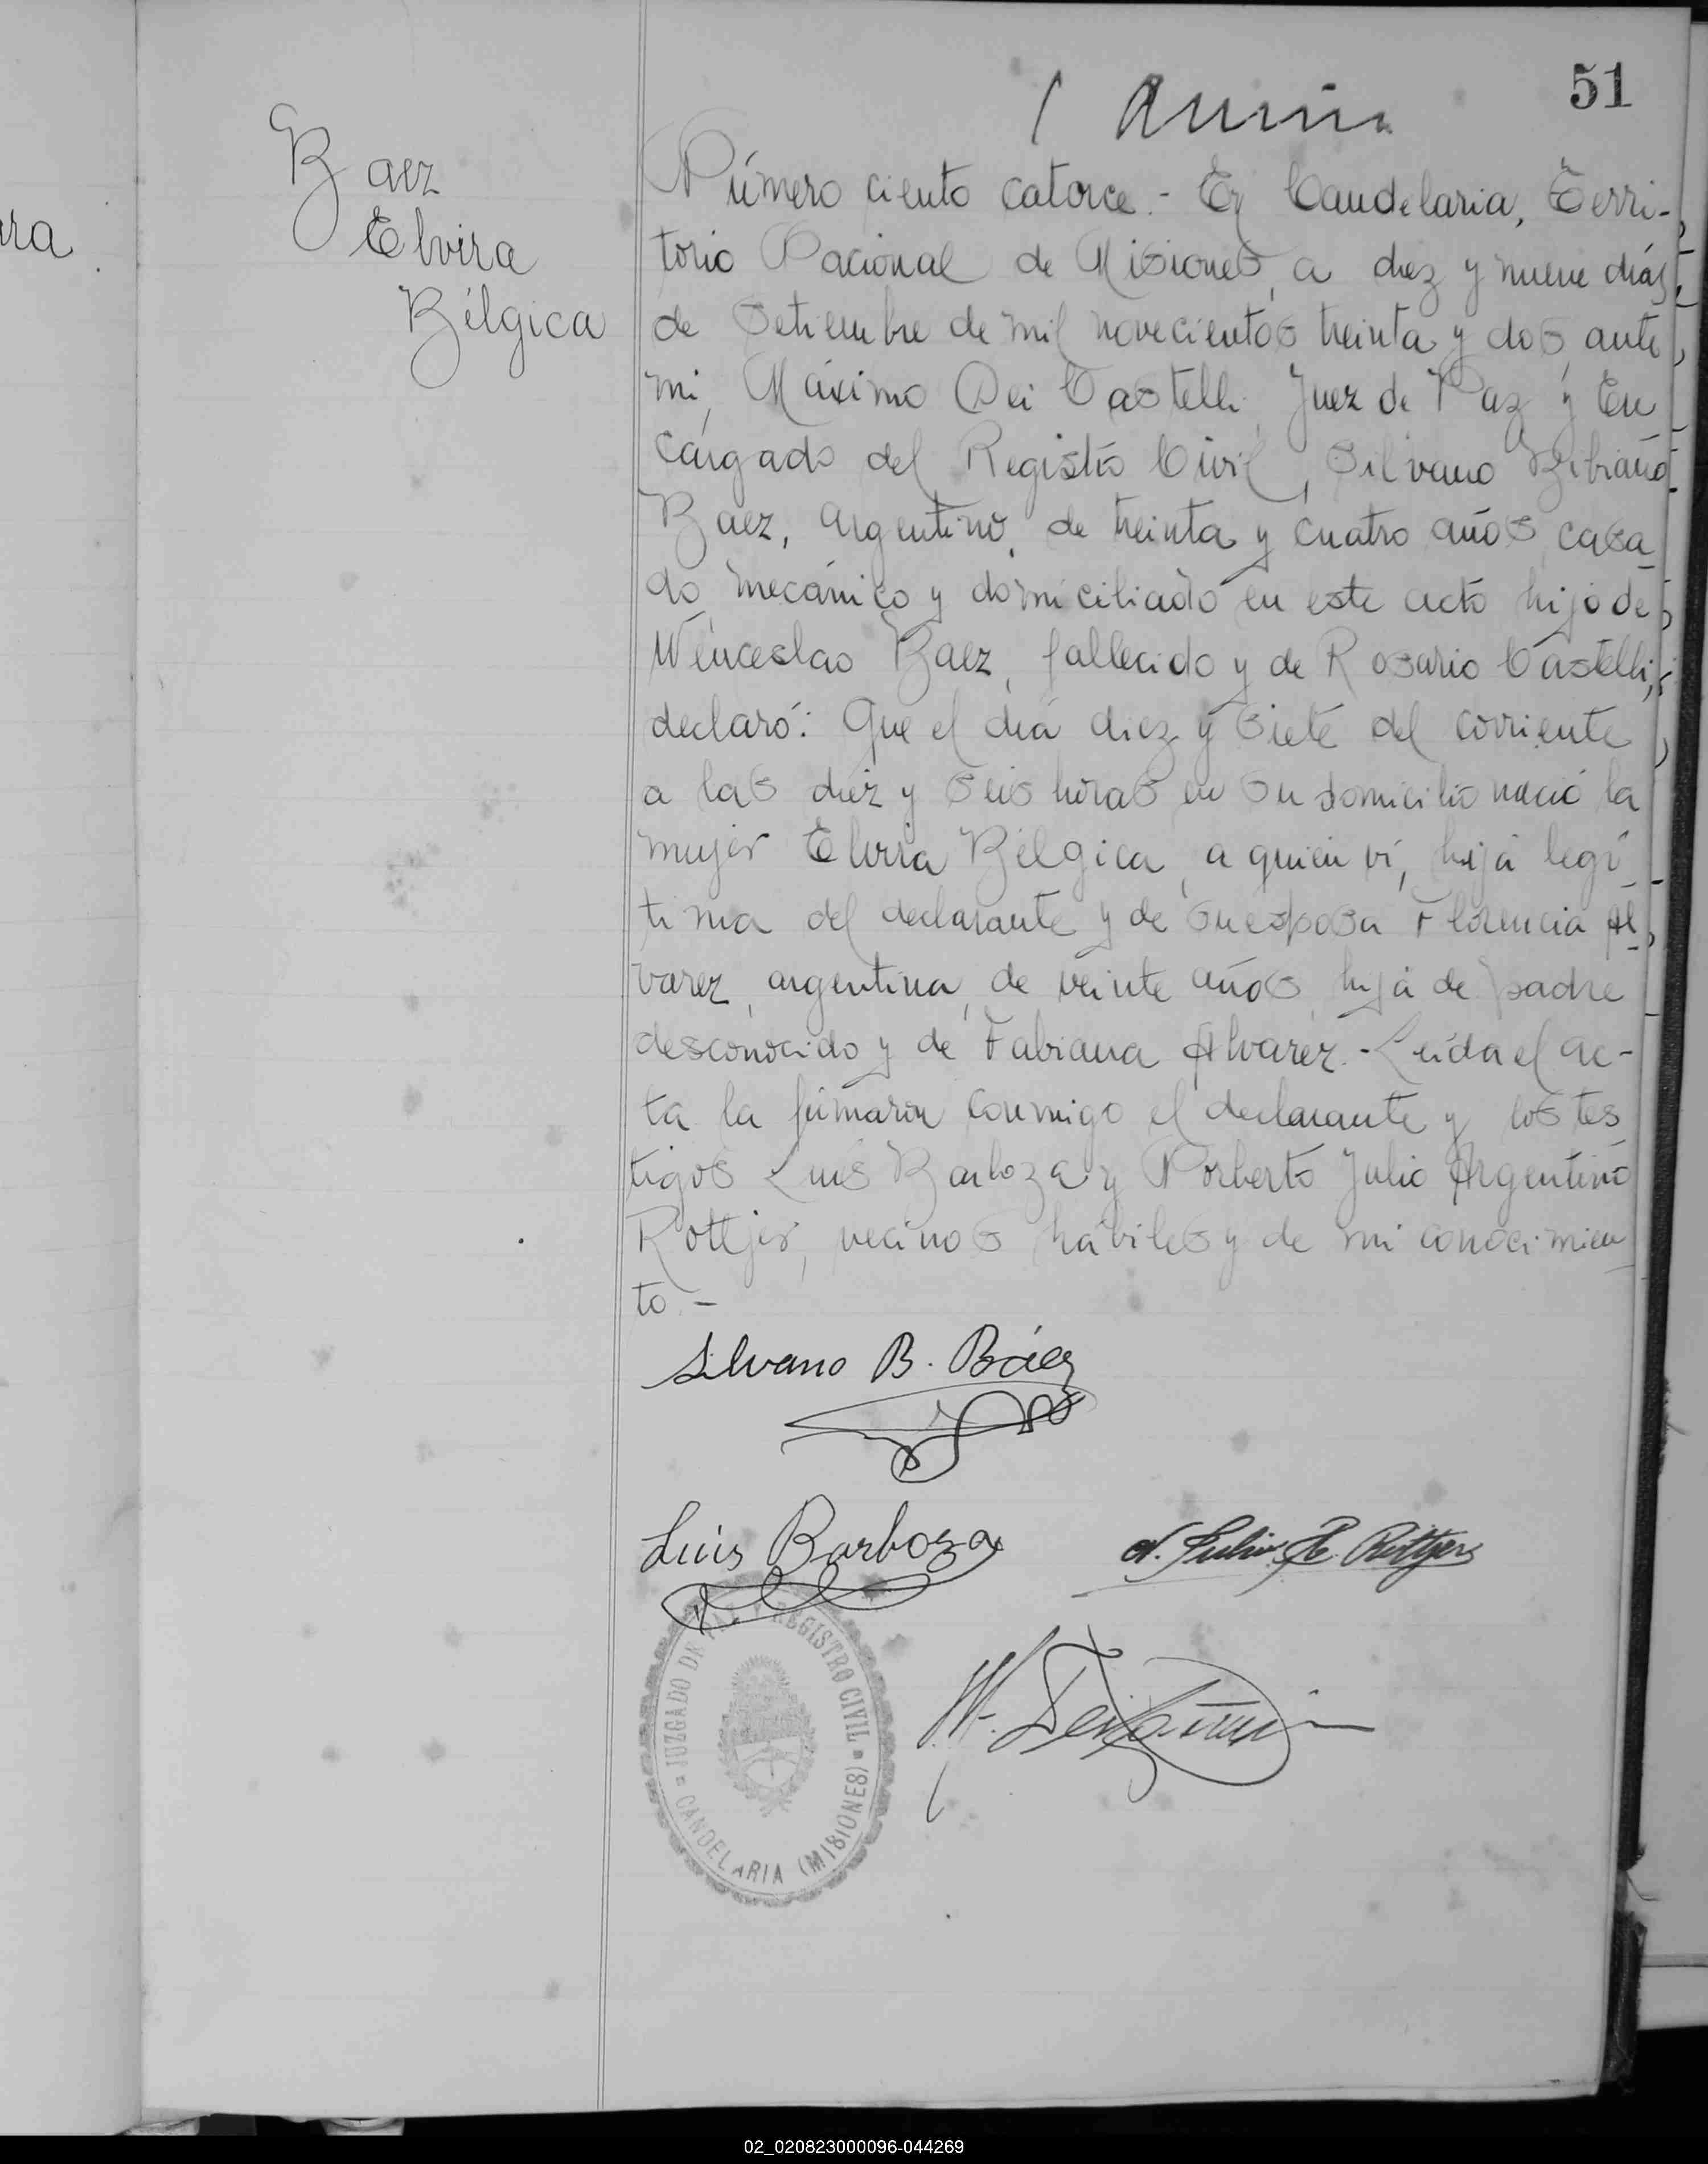 51
Baez
Elvira
Bélgica
ara
Número ciento catorce.- En Candelaria, Terri-
torio Nacional de Misiones, a diez y nueve días
de Setiembre de mil novecientos treinta y dos, ante
mi, Máximo Dei Castelli, Juez de Paz y En
cargado del Registro Civil, Silvano Bibiano
Baez, argentino, de treinta y cuatro años, casa
do, mecánico y domiciliado en este acto hijo de
Wenceslao Baez, fallecido y de Rosario Castelli,
declaró: Que el día diez y siete del corriente
a las diez y seis horas en su domicilio nació la
mujer Elvira Bélgica, a quien ví, hija legí
tima del declarante y de su esposa Florencia Al
varez, argentina, de veinte años, hija de padre
desconocido y de Fabiana Alvarez.- Leída el ac-
ta la firmaron conmigo el declarante y los tes
tigos Luis Barboza y Norberto Julio Argentino
Rottjer, vecinos hábiles y de mi conocimien
to.-
Silvano B. Báez
Luis Barboza
N. Julio A. Röttjer
JUZGADO DE PAZ Y REGISTRO CIVIL
CANDELARIA (MISIONES)
02_020823000096-044269